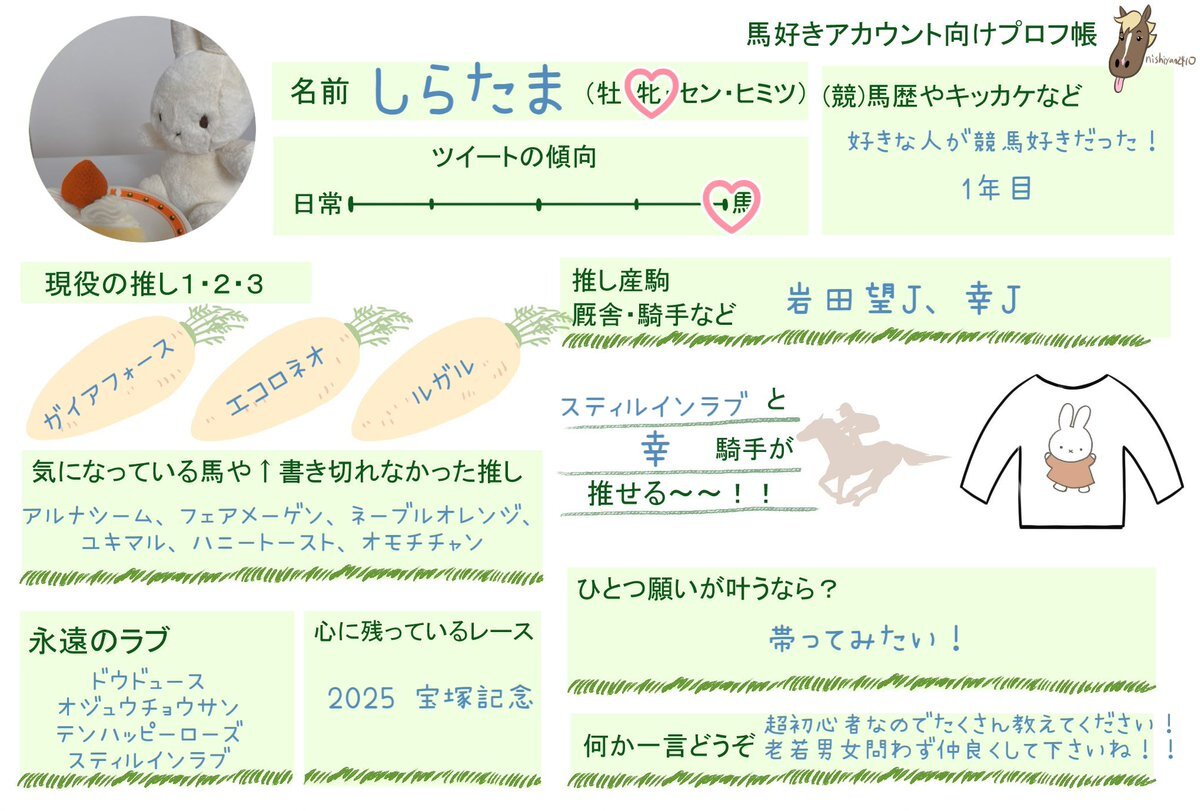 馬好きアカウント向けプロフ帳
nishiyama410
名前 しらたま (牡・牝・セン・ヒミツ)
ツイートの傾向
日常 馬
(競)馬歴やキッカケなど
好きな人が競馬好きだった！
1年目
現役の推し1・2・3
ガイアフォース
エコロネオ
ルガル
推し産駒
厩舎・騎手など 岩田望J、幸J
気になっている馬や↑書き切れなかった推し
アルナシーム、フェアメーゲン、ネーブルオレンジ、
ユキマル、ハニートースト、オモチチャン
スティルインラブ と
幸 騎手が
推せる〜〜！！
永遠のラブ
ドウドュース
オジュウチョウサン
テンハッピーローズ
スティルインラブ
心に残っているレース
2025 宝塚記念
ひとつ願いが叶うなら？
帯ってみたい！
何か一言どうぞ
超初心者なのでたくさん教えてください！
老若男女問わず仲良くして下さいね！！